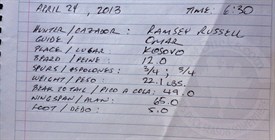 APRIL 29, 2013 TIME: 6:30
HUNTER/CAZADOR: RAMSEY RUSSELL
GUIDE/ OMAR
PLACE/LUGAR KOSOVO
BEARD/PEINE: 12.0
SPURS/ESPOLONES: 3/4 ; 3/4
WEIGHT/PESO: 22.1 LBS.
BEAK TO TAIL/PICO A COLA: 49.0
WINGSPAN/ALAN: 65.0
FOOT/DEDO: 5.0